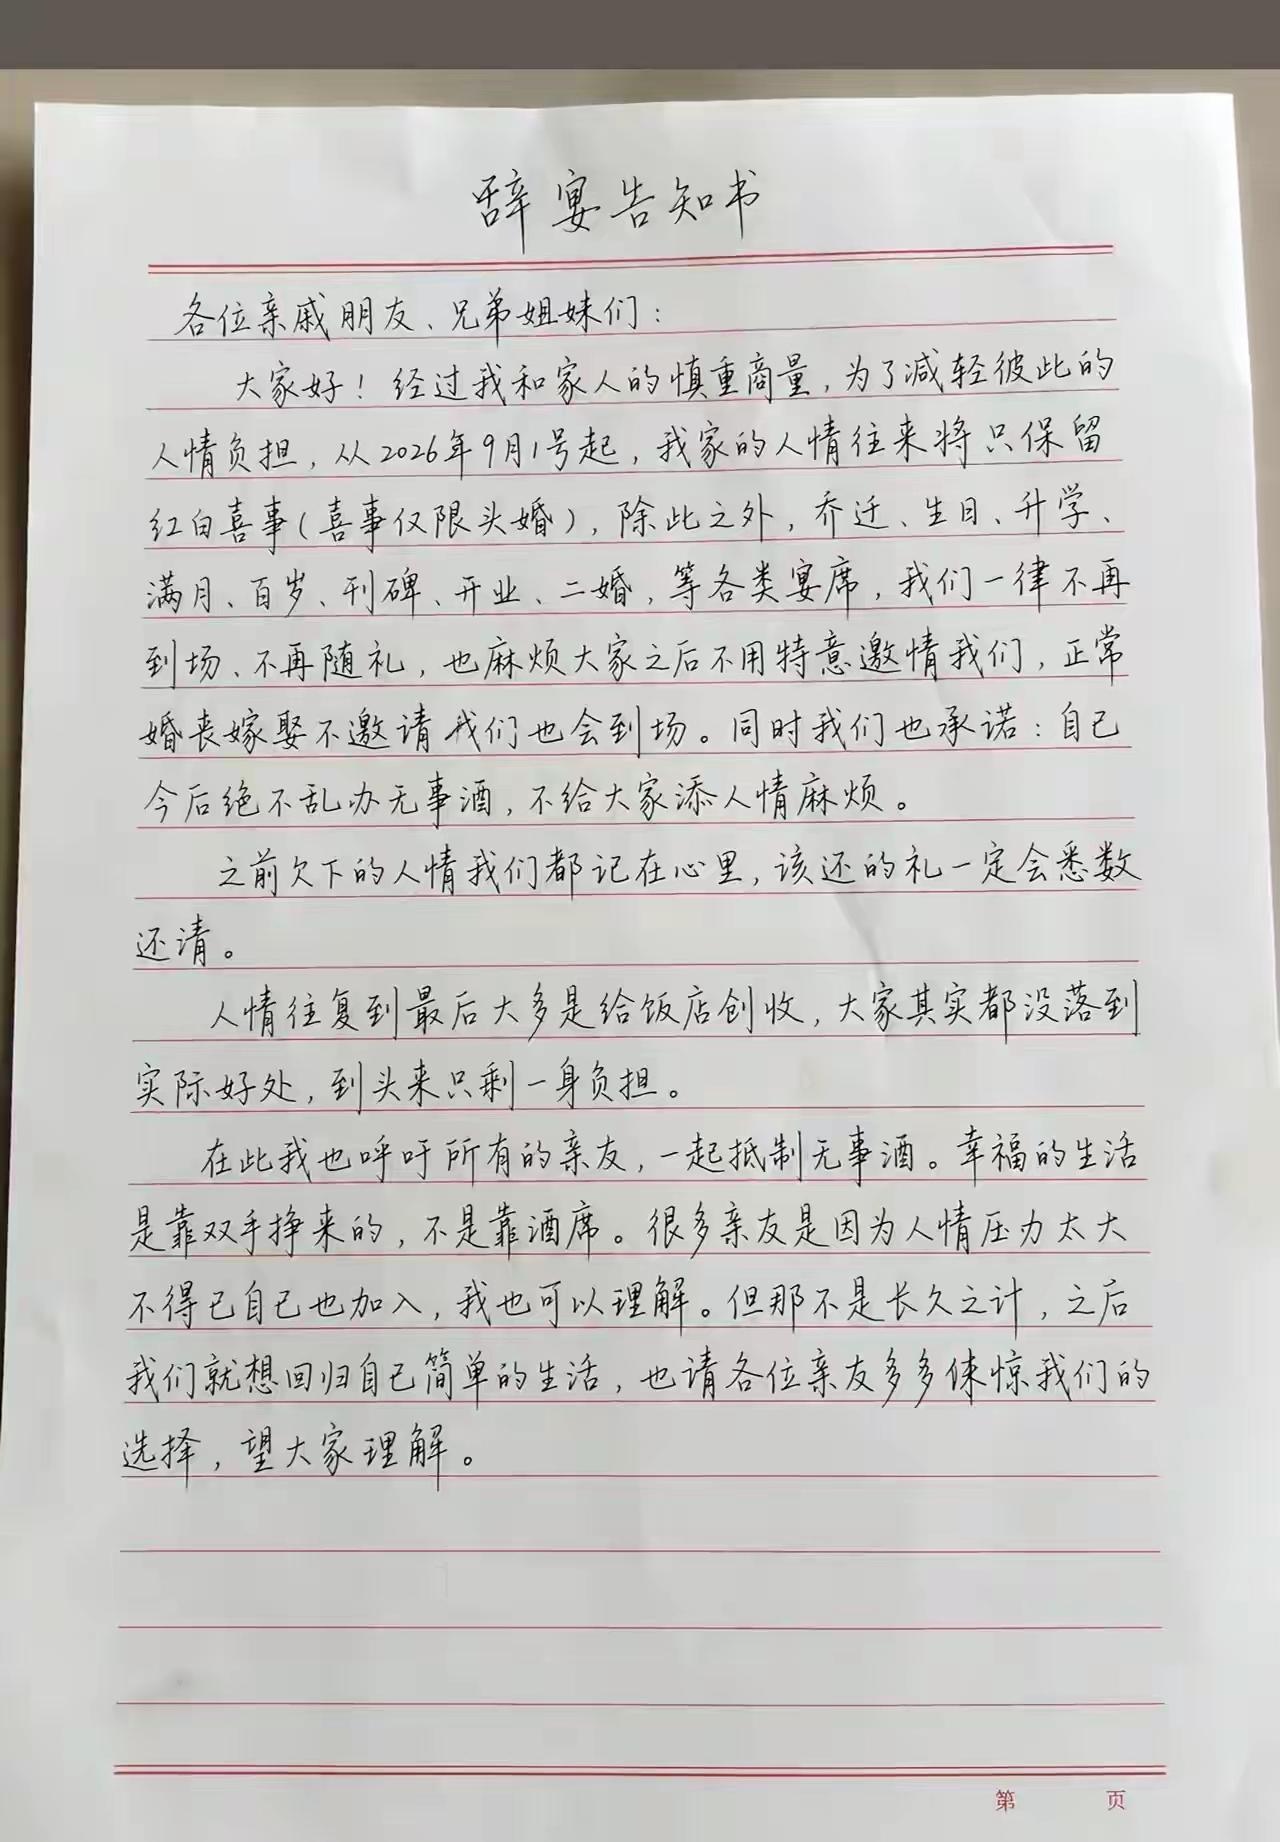 辞宴告知书
各位亲戚朋友、兄弟姐妹们：
大家好！经过我和家人的慎重商量，为了减轻彼此的
人情负担，从2026年9月1号起，我家的人情往来将只保留
红白喜事（喜事仅限头婚），除此之外，乔迁、生日、升学、
满月、百岁、刊碑、开业、二婚，等各类宴席，我们一律不再
到场、不再随礼，也麻烦大家之后不用特意邀情我们，正常
婚丧嫁娶不邀请我们也会到场。同时我们也承诺：自己
今后绝不乱办无事酒，不给大家添人情麻烦。
之前欠下的人情我们都记在心里，该还的礼一定会悉数
还清。
人情往复到最后大多是给饭店创收，大家其实都没落到
实际好处，到头来只剩一身负担。
在此我也呼吁所有的亲友，一起抵制无事酒。幸福的生活
是靠双手挣来的，不是靠酒席。很多亲友是因为人情压力太大
不得已自己也加入，我也可以理解。但那不是长久之计，之后
我们就想回归自己简单的生活，也请各位亲友多多体惊我们的
选择，望大家理解。
第 页